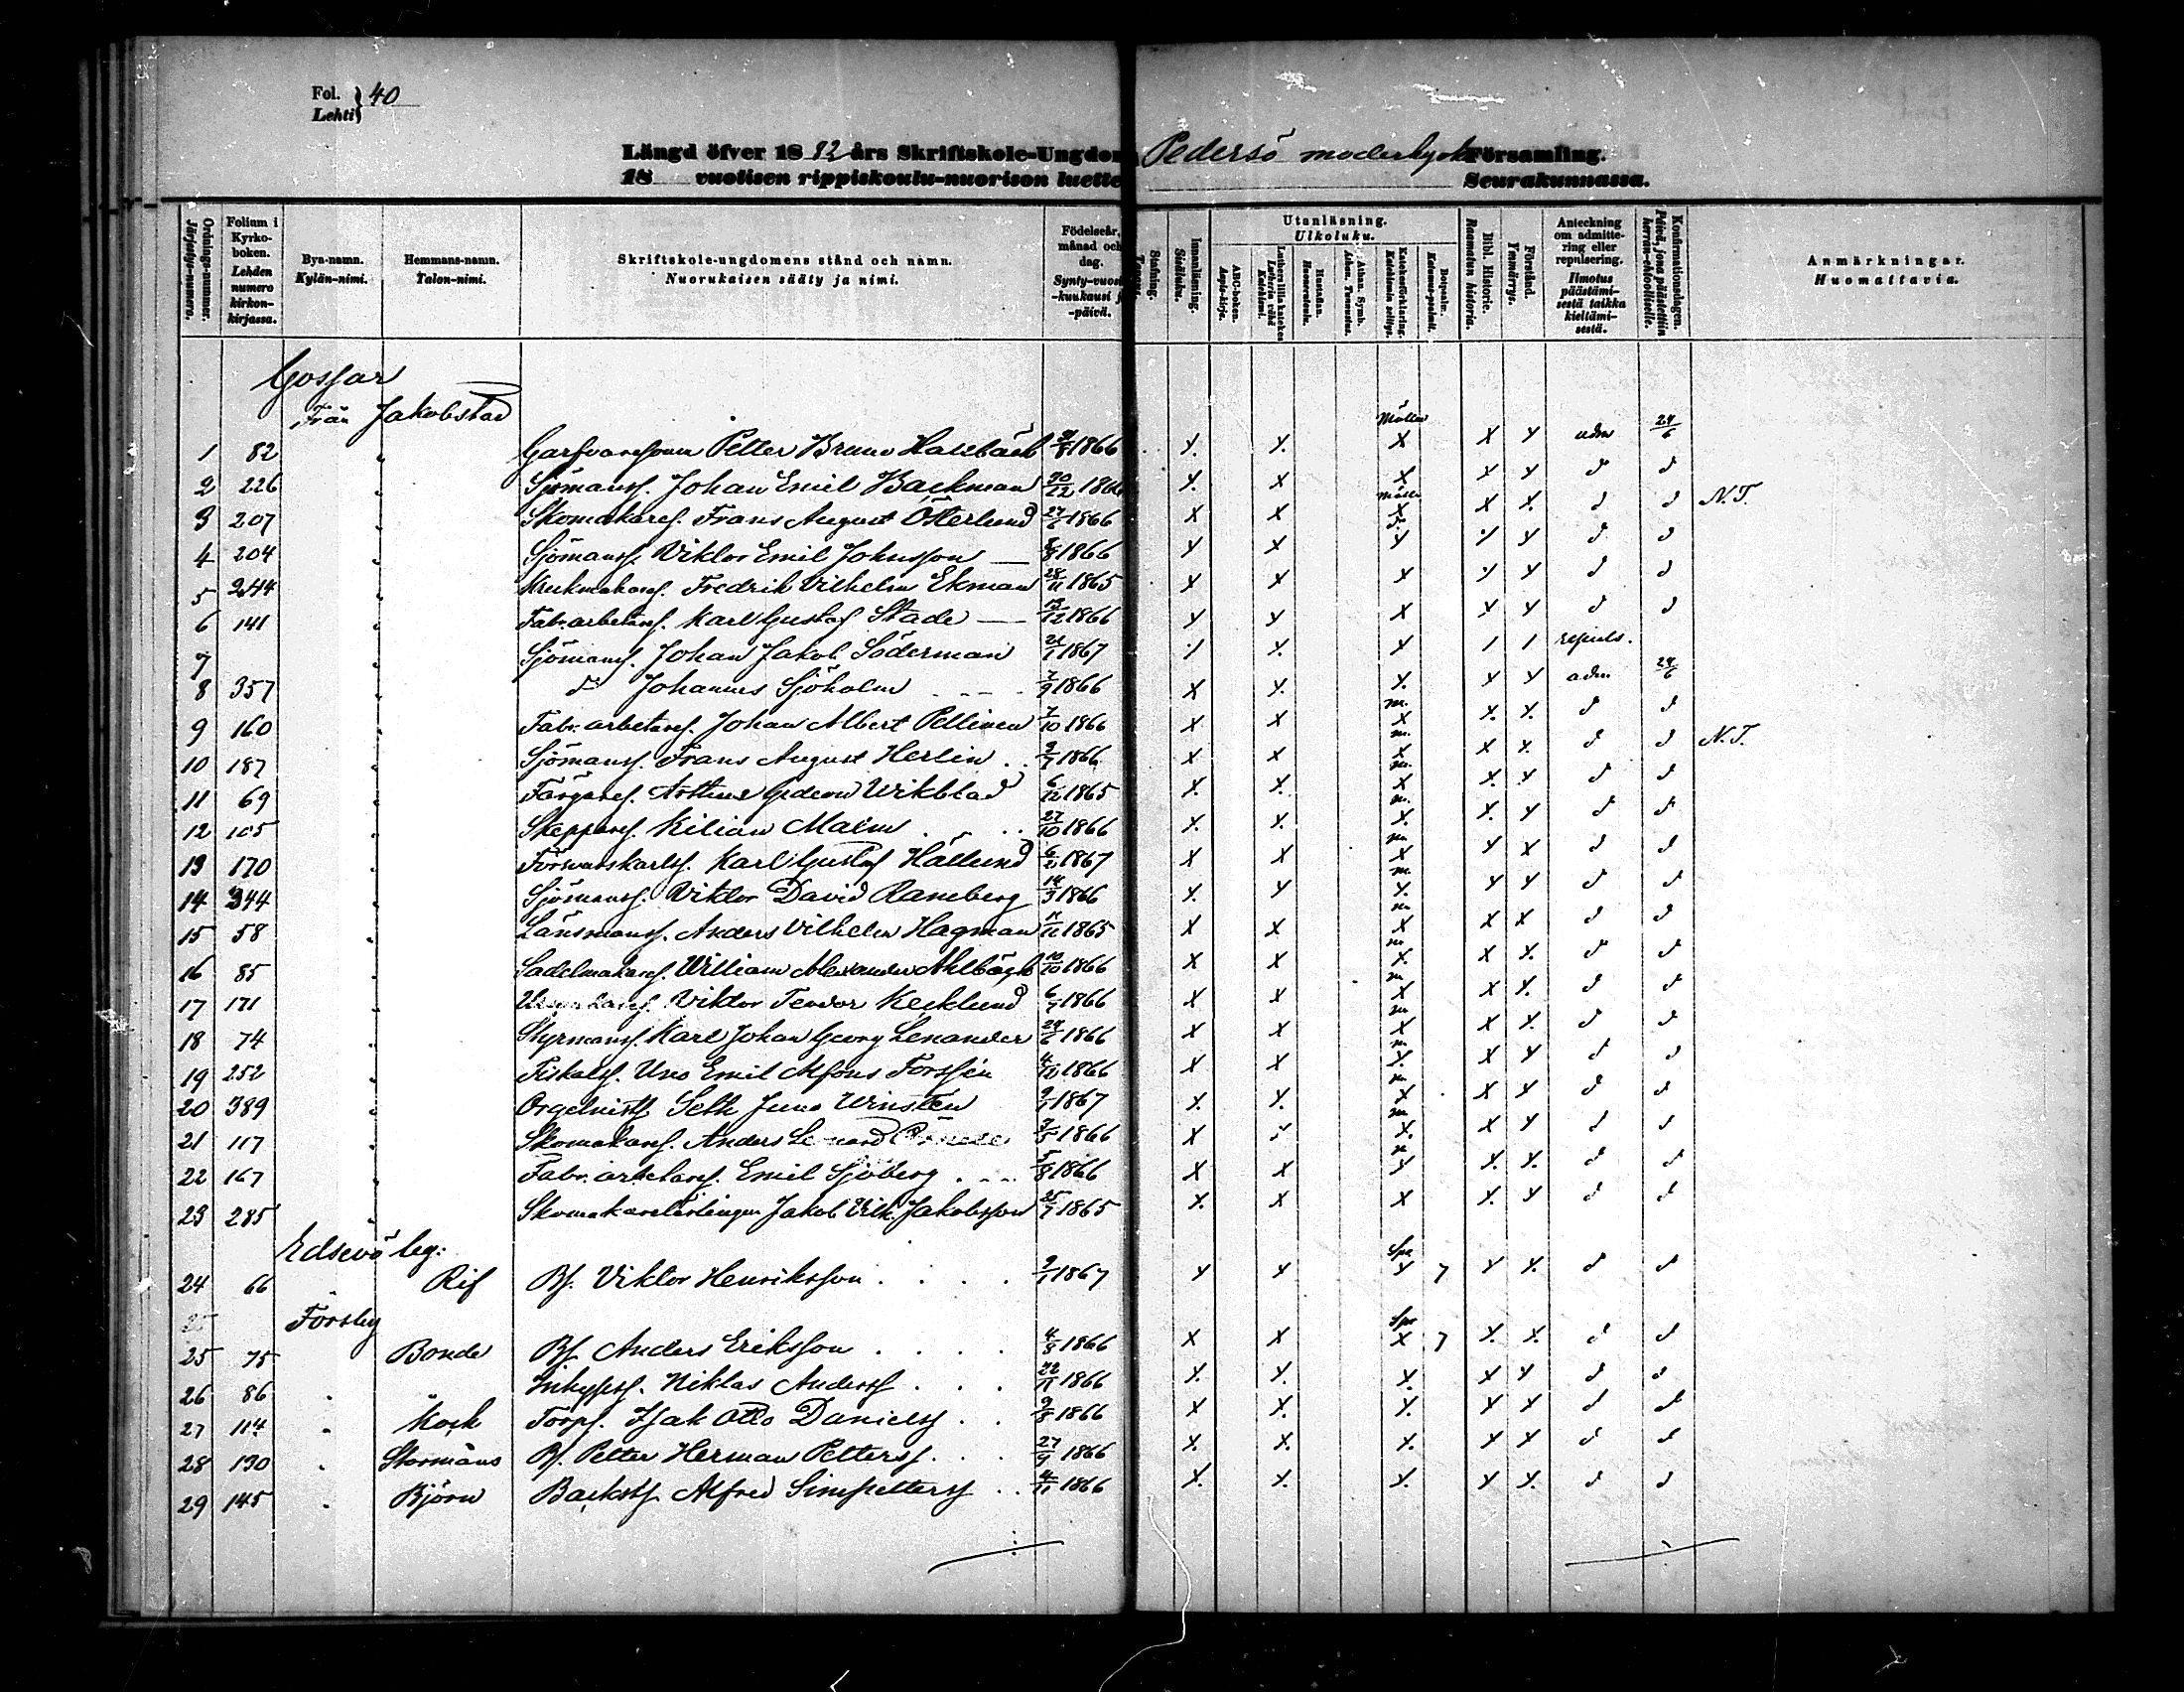 Fol. 40
Lehti
Längd öfver 1882 års Skriftskole-Ungdom Pedersö moderkyrko Församling.
18 vuotisen rippiskoulu-nuorison luettelo Seurakunnassa.
Ordnings-nummer. Järjestys-numero.
Folium i Kyrko-boken. Lehden numero kirkon-kirjassa.
Bya-namn. Kylän-nimi.
Hemmans-namn. Talon-nimi.
Skriftskole-ungdomens stånd och namn. Nuorukaisen sääty ja nimi.
Födelseår, månad och dag. Synty-vuosi -kuukausi ja -päivä.
Stafning. Tavuu.
Innanläsning. Sisäluku.
Utanläsning. Ulkoluku.
ABC-boken. Aapis-kirja.
Lutheri lilla katekes Lutherin vähä Katekismi.
Hustaflan. Huoneentaulu.
Athan. Symb. Athan. Tunnustus.
Katekesförklaring. Katekismin selitys.
Botpsalm. Katumus-psalmit.
Bibl. Historie. Raamatun historia.
Förstånd. Ymmärrys.
Anteckning om admitte-ring eller repulsering. Ilmotus päästämi-sestä taikka kieltämi-sestä.
Konfirmationsdagen. Päivä, jona päästettiin herran-ehtoolliselle.
Anmärkningar. Huomattavia.
Gossar
Från Jakobstad
1 82 " Garfvaresonen Petter Bruno Hallbäck 1866 X X Möller X X Y adm 24/6
2 226 " Sjömanss. Johan Emil Backman 30/12 1866 Y X X Y Y d d
3 207 " Skomakares. Frans August Österlund 27/6 1866 X X Möller X X X d d N.T.
4 204 " Sjömanss. Viktor Emil Johnsson 1866 Y X d. Y Y Y d d
5 244 " Krukmakares. Fredrik Vilhelm Ekman 28/11 1865 X X X Y Y d d
6 141 " Fab. arbetares. Karl Gustaf Stade 13/12 1866 Y Y X Y Y d d
7 " Sjömanss. Johan Jakob Söderman 21/1 1867 Y X Y / / repuls.
8 357 " d:o Johannes Sjöholm 7/9 1866 X X X Y Y adm. 24/6
9 160 " Fabr. arbetares. Johan Albert Pellinen 7/10 1866 X X m. X X X d d
10 187 " Sjömanss. Frans August Herlin 9/1 1866 X X m. X X X d d N.T.
11 69 " Färgares. Arthur Gideon Wikblad 6/12 1865 X X m. X X Y d d
12 105 " Skeppares. Kilian Malm 27/10 1866 X X m. X X Y d d
13 170 " Försvarskarlss. Karl Gustaf Hällund 6/2 1867 X X m X Y X d d
14 344 " Sjömanss. Viktor David Raneberg 14/3 1866 X Y m. X Y Y d d
15 58 " Länsmanss. Anders Vilhelm Hagman 11/11 1865 X X m X X X d d
16 85 " Sadelmakares. William Alexander Ahlbäck 10/10 1866 X X m X X X d d
17 171 " Viktor Teodor Kecklund 6/7 1866 X X m X X X d d
18 74 " Styrmanss. Karl Johan Georg Lenander 24/6 1866 X X m X X X d d
19 252 " Fiskals. Uno Emil Alfons Forssén 4/10 1866 X X m X X Y d d
20 389 " Orgelnists. Seth Juno Winstén 9/1 1867 X X m X X Y d d
21 117 " Skomakares. Anders Leonard 1866 X X m X X Y d d
22 167 " Fabr. arbetares. Emil Sjöberg 5/8 1866 X X m Y X X d d
23 285 " Skomakarelärlingen Jakob Vilh. Jakobsson 25/7 1865 X X X X Y d d
Edsevö by:
24 66 Rif Bs. Viktor Henriksson 9/1 1867 Y Y Spe Y 7 Y X d d
Forsby
25 75 Bonde Bs. Anders Eriksson 4/8 1866 X X Spe X 7 X X d d
26 86 " Inhyses. Niklas Anderss. 22/11 1866 X X X X Y d d
27 114 " Kock Torps. Isak Otto Daniels. 9/8 1866 X X X Y Y d d
28 130 " Stormåns Bs. Petter Herman Petterss. 27/9 1866 X X X Y Y d d
29 145 " Björn Backsts. Alfred Simpetterss 4/11 1866 X X X Y X d d